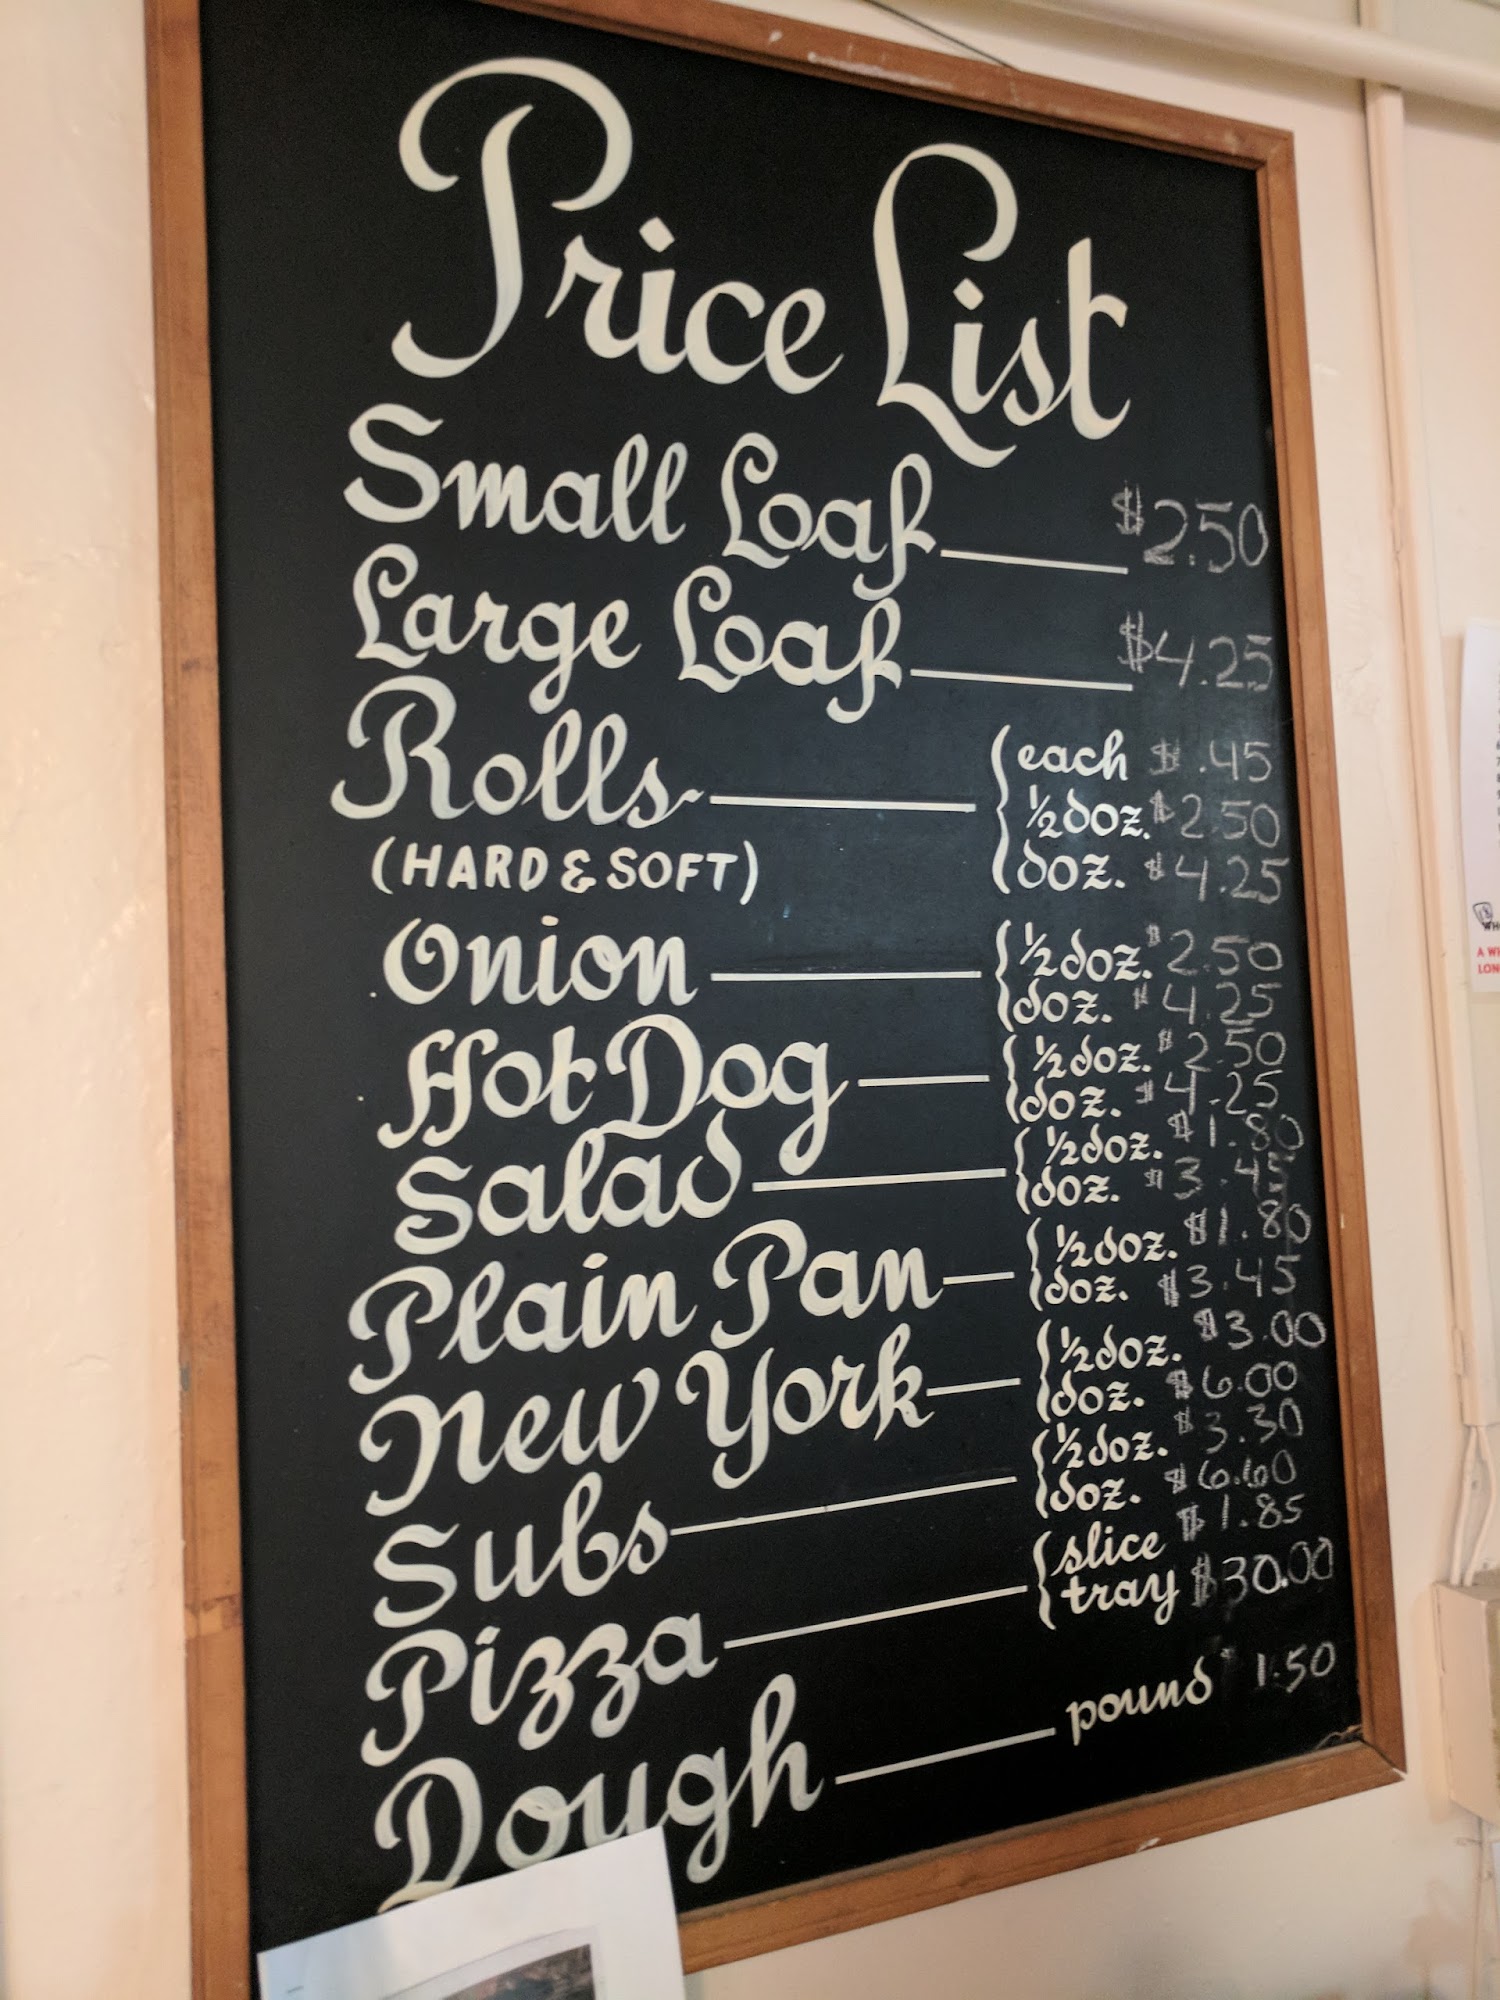 Price List
Small Loaf $2.50
Large Loaf $4.25
Rolls each $.45
½ doz. $2.50
doz. $4.25
(HARD & SOFT)
Onion ½ doz. $2.50
doz. $4.25
Hot Dog ½ doz. $2.50
doz. $4.25
Salad ½ doz. $1.80
doz. $3.45
Plain Pan ½ doz. $1.80
doz. $3.45
New York ½ doz. $3.00
doz. $6.00
Subs ½ doz. $3.30
doz. $6.60
Pizza slice $1.85
tray $30.00
Dough pound 1.50
A
LON